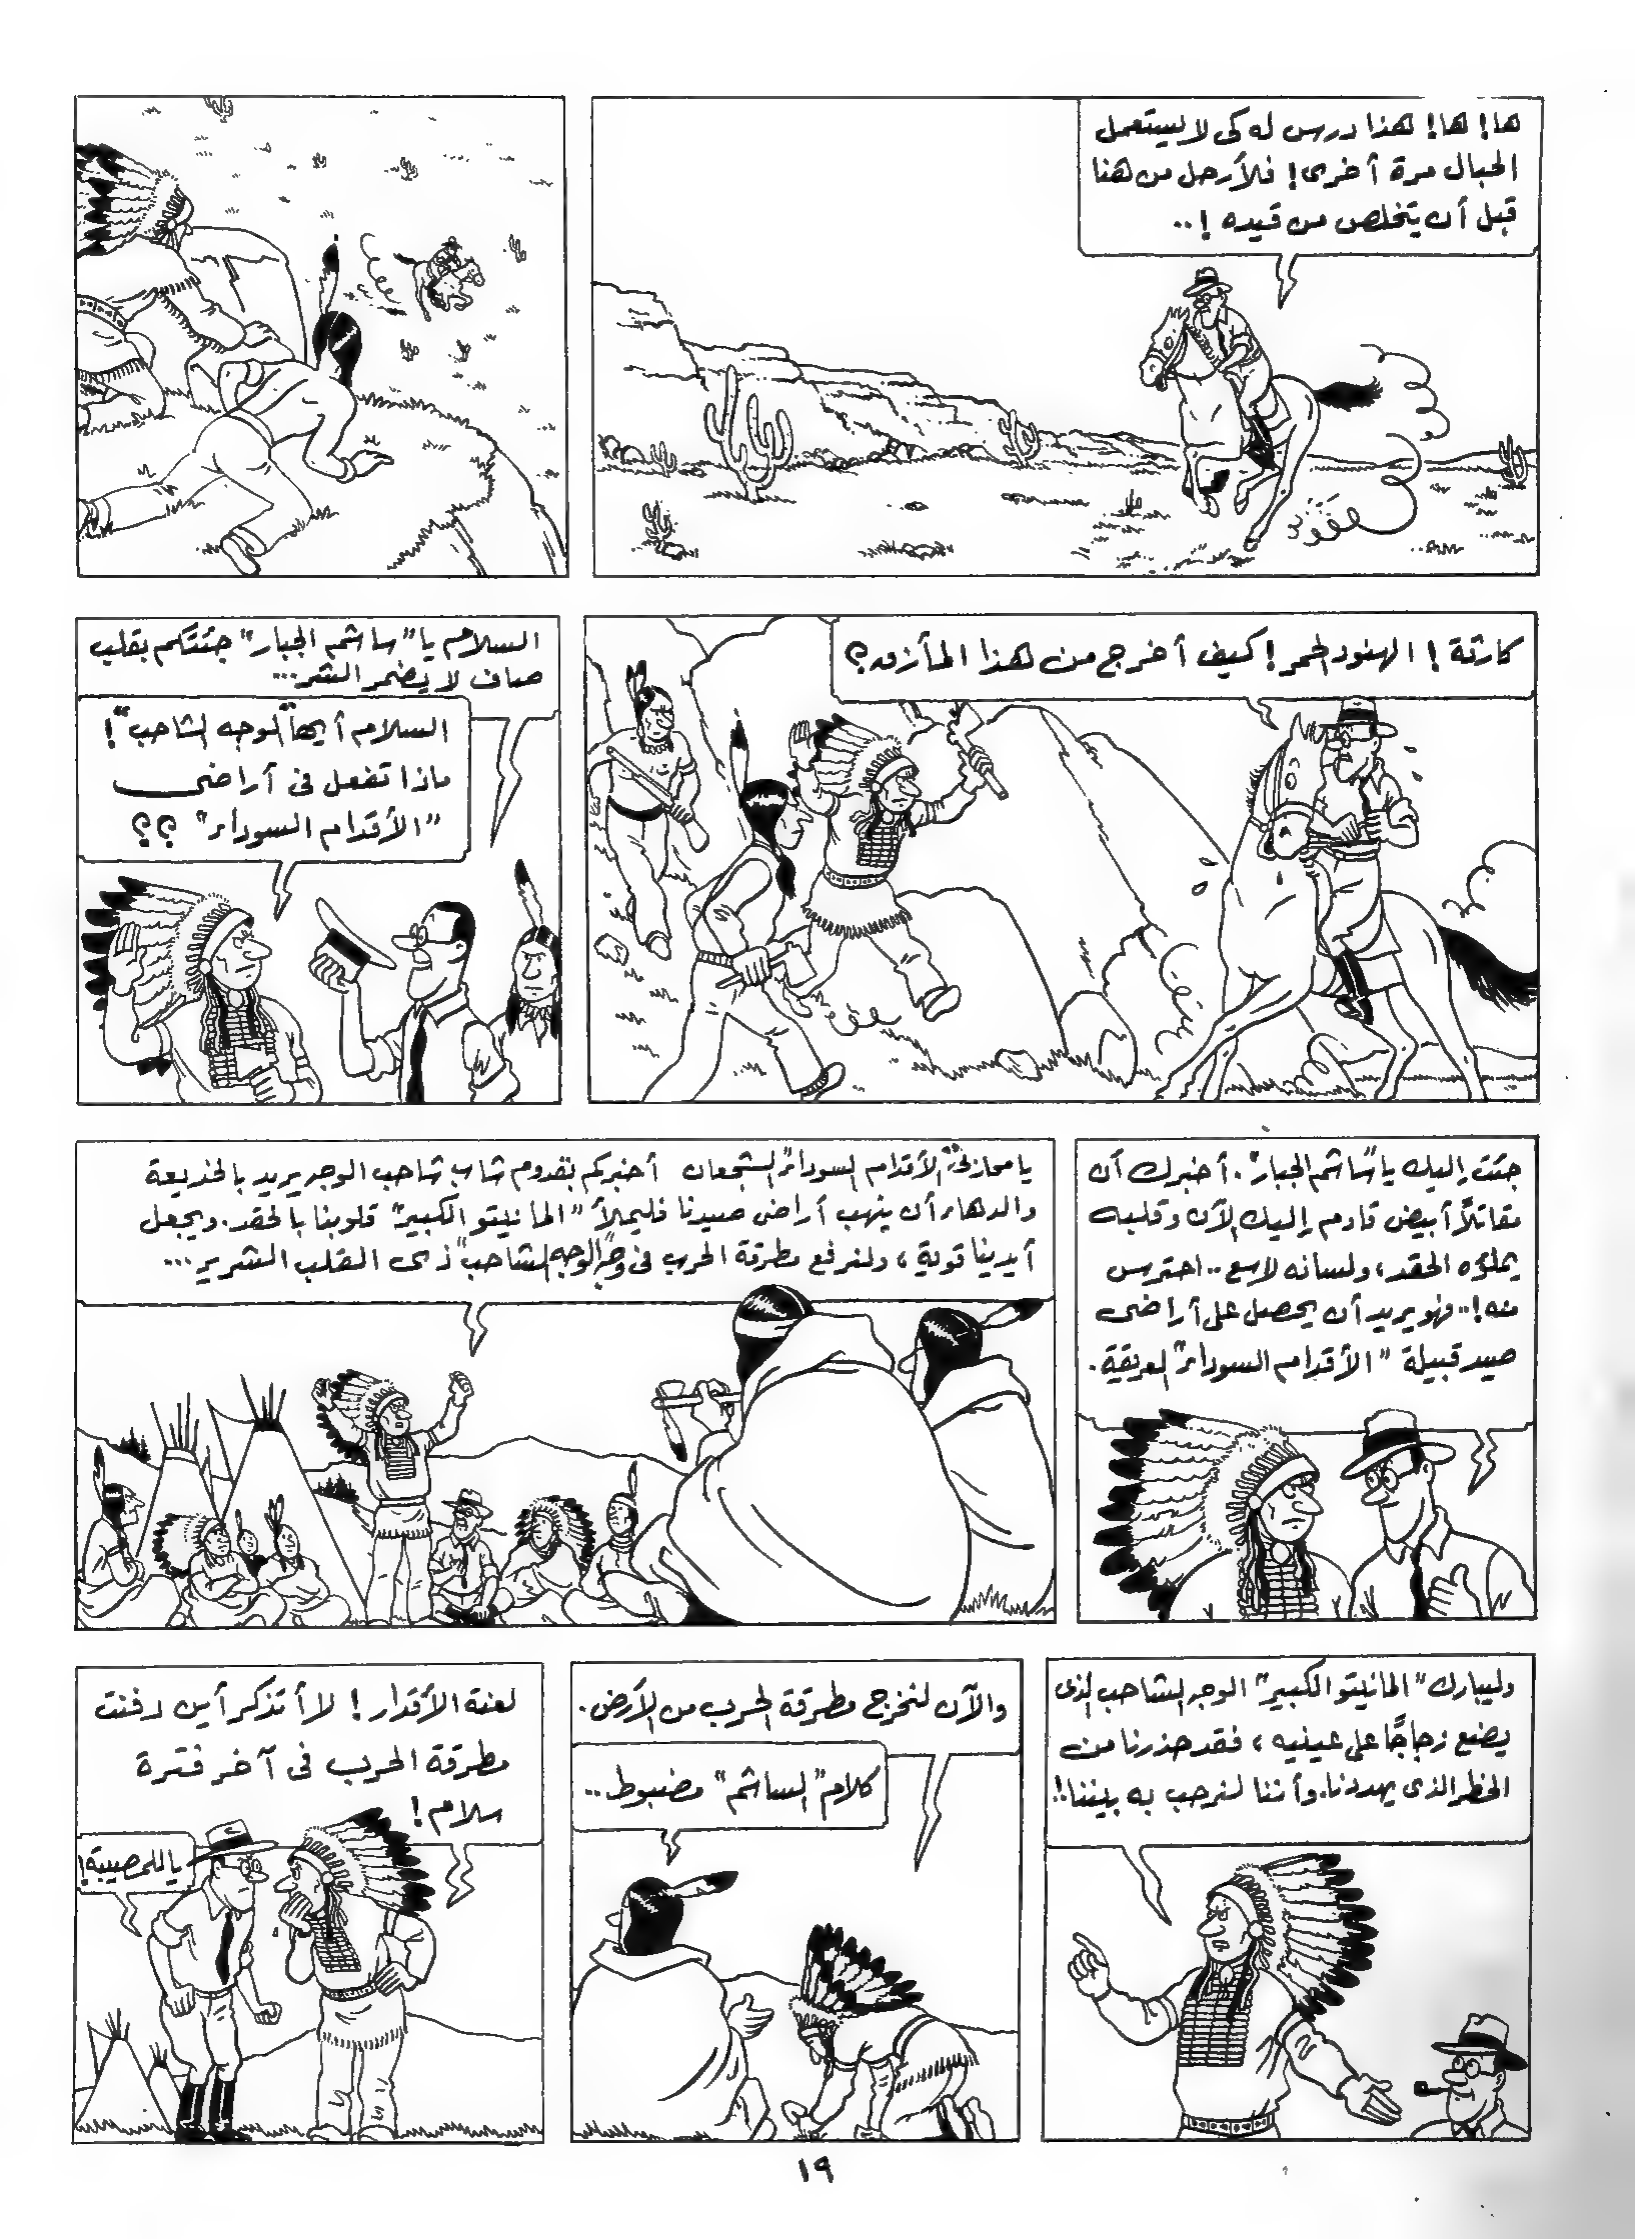 ها! ها! هذا درس له كى لا يستعمل
الحبال مرة أخرى! فلأرحل من هنا
قبل أن يتخلص من قيده!..
كارثة! الهنود الحمر! كيف أخرج من هذا المأزق؟
السلام يا "ساشم الجبار" جئتكم بقلب
صاف لا يضمر الشر...
السلام أيها "الوجه الشاحب"!
ماذا تفعل فى أراضى
"الأقدام السوداء" ؟؟
جئت إليك يا "ساشم الجبار". أخبرك أن
مقاتلاً أبيض قادم إليك الآن وقلبه
يملؤه الحقد، ولسانه لاسع.. احترس
منه!.. فهو يريد أن يحصل على أراضى
صيد قبيلة "الأقدام السوداء" العريقة.
يا محازبى "الأقدام السوداء" الشجعان أخبركم بقدوم شاب شاحب الوجه يريد بالخديعة
والدهاء أن ينهب أراضى صيدنا فليملأ "المانيتو الكبير" قلوبنا بالحقد. ويجعل
أيدينا قوية، ولنرفع مطرقة الحرب فى وجه "الوجه الشاحب" ذى القلب الشرير...
وليبارك "المانيتو الكبير" الوجه الشاحب الذى
يضع زجاجًا على عينيه، فقد حذرنا من
الخطر الذى يهددنا. وأننا لنرحب به بيننا!!
والآن لنخرج مطرقة الحرب من الأرض.
كلام "الساشم" مضبوط..
لعنة الأقدار! لا أتذكر أين دفنت
مطرقة الحرب فى آخر فترة
سلام!
يا للمصيبة!
١٩